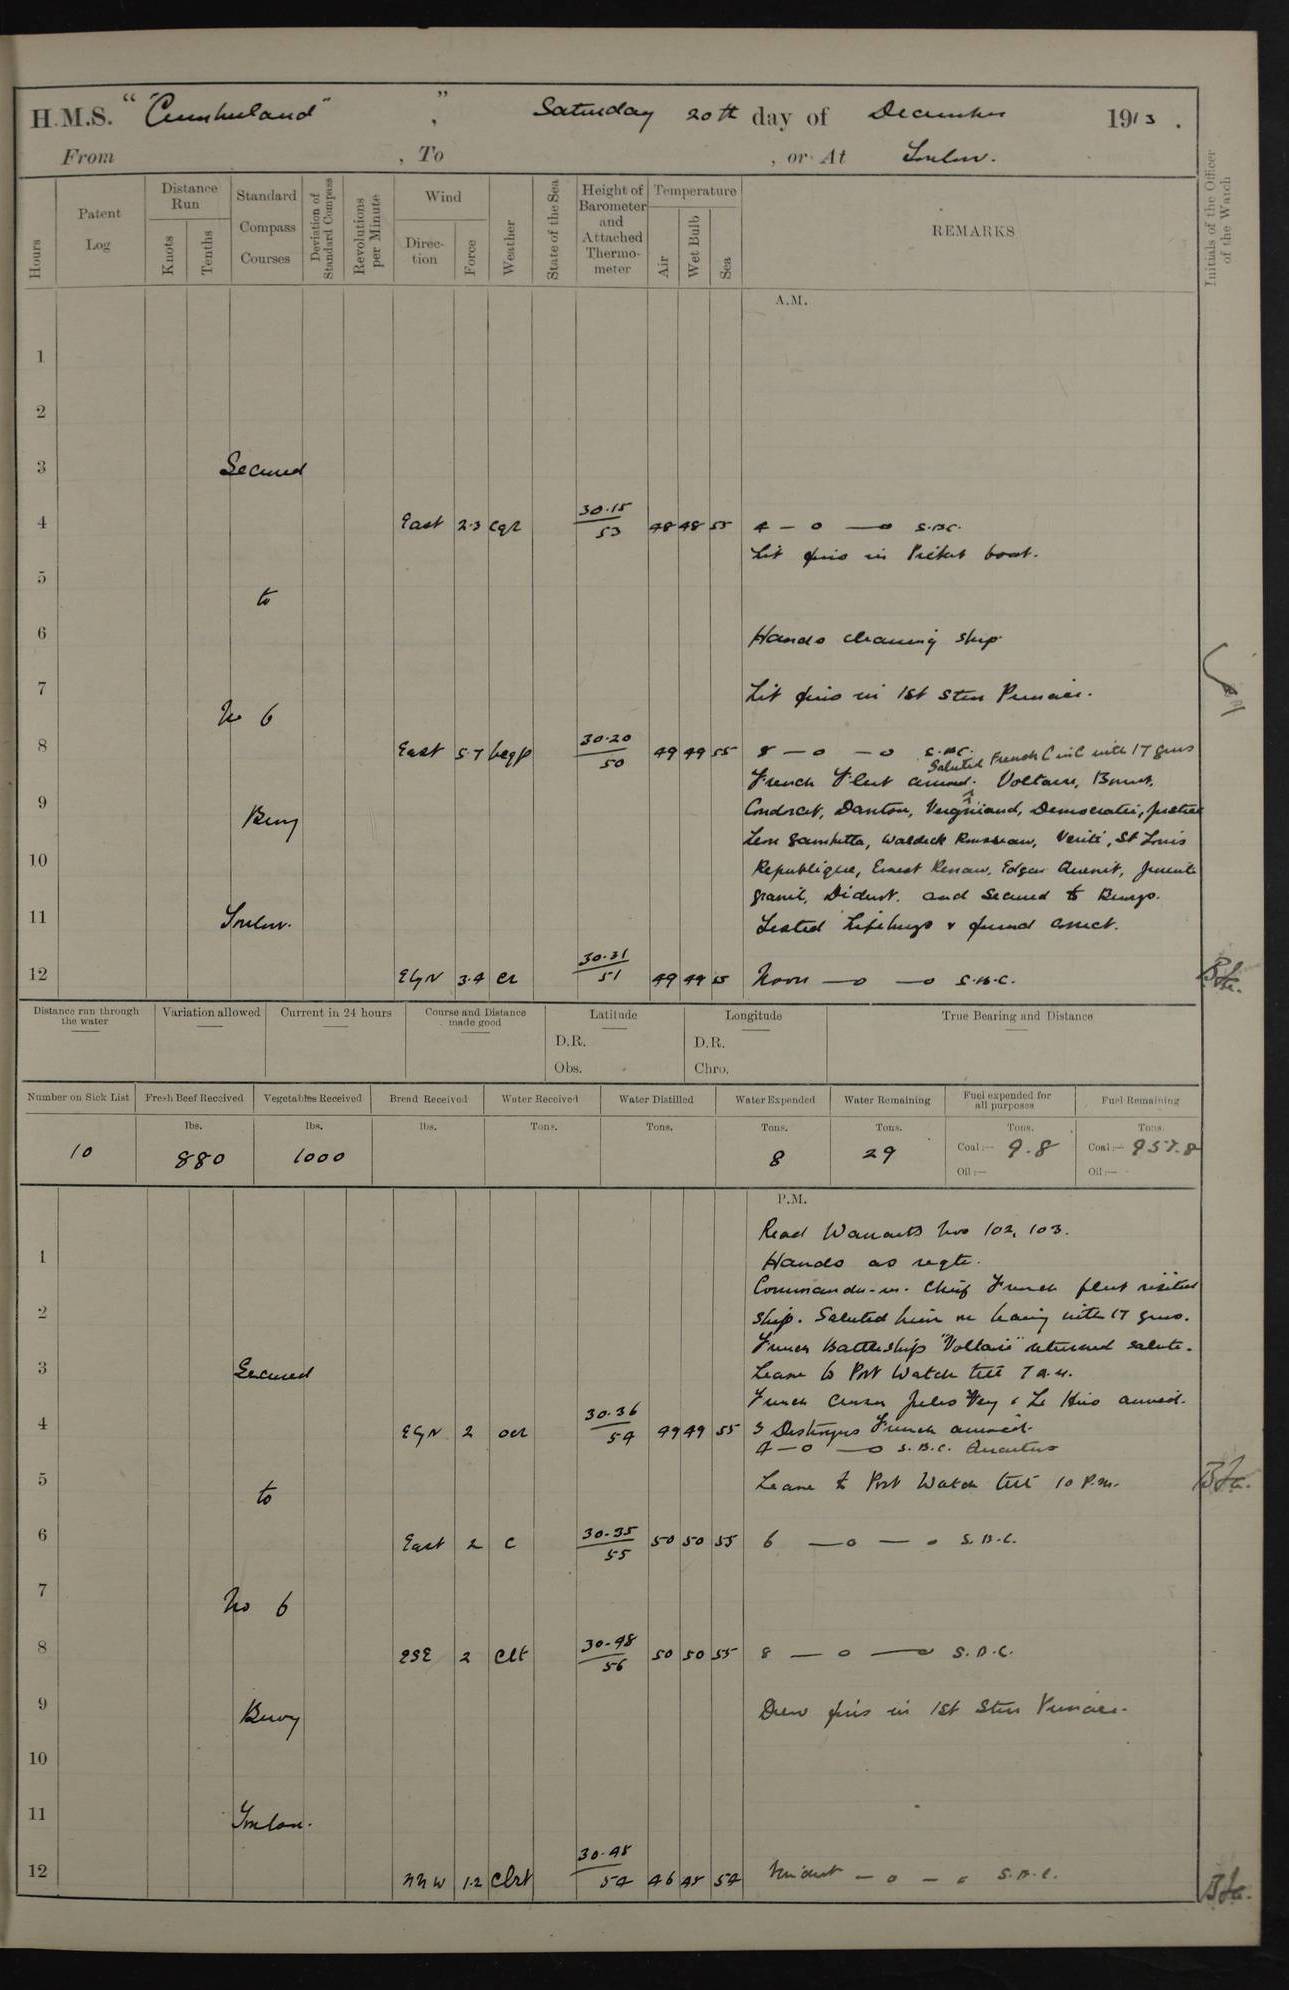 H.M.S. " "Cumberland" " , Saturday 20th day of December 1913 .
From , To , or At Toulon.
Hours
Patent Log
Distance Run
Knots
Tenths
Standard Compass Courses
Deviation of Standard Compass
Revolutions per Minute
Wind
Direc-tion
Force
Weather
State of the Sea
Height of Barometer and Attached Thermo-meter
Temperature
Air
Wet Bulb
Sea
REMARKS
Initials of the Officer of the Watch
A.M.
1
2
3 Secured
4 East 2.3 30.15 53 48 48 55 4 — o — o S.B.C.
Lit fires in Picket boat.
5
to
6 Hands cleaning ship
7 Lit fires in 1st Stm Pinnace.
No 6
8 East 5.7 30.20 50 49 49 55 8 — o — o S.B.C.
Saluted French C in C with 17 guns
French Fleet arrived. Voltaire,
9 Condorcet, Danton, Vergniaud, Democratie, Justice
Buoy
Leon Gambetta, Waldeck Rousseau, Verité, St Louis
10 Republique, Ernest Renan, Edgar Quinet,
and secured to Buoys.
11 Toulon. Tested Lifebuoys & found correct.
12 E by N 3.4 30.31 51 49 49 55 Noon — o — o S.B.C.
Distance run through the water
Variation allowed
Current in 24 hours
Course and Distance made good
Latitude
D.R.
Obs.
Longitude
D.R.
Chro.
True Bearing and Distance
Number on Sick List Fresh Beef Received Vegetables Received Bread Received Water Received Water Distilled Water Expended Water Remaining Fuel expended for all purposes Fuel Remaining
lbs. lbs. lbs. Tons. Tons. Tons. Tons. Tons. Tons.
10 880 1000 8 29 Coal:— 9.8 Coal:— 957.8
Oil:— Oil:—
P.M.
Read Warrants Nos 102, 103.
1 Hands as reqte.
Commander-in-Chief French fleet visited
2 ship. Saluted him on leaving with 17 guns.
French Battleship "Voltaire" returned salute.
3 Secured Leave to Port Watch till 7 a.m.
French Cruiser arrived.
4 E by N 2 30.36 54 49 49 55 Destroyers French arrived.
4 — o — o S.B.C. Quarters
5 Leave to Port Watch till 10 P.M.
to
6 East 2 c 30.35 55 50 50 55 6 — o — o S.B.C.
7
No 6
8 ESE 2 30.48 56 50 50 55 8 — o — o S.B.C.
9 Buoy Drew fires in 1st Stm Pinnace.
10
11 Toulon.
12 NNW 1.2 30.48 54 46 45 54 Midnt — o — o S.B.C.